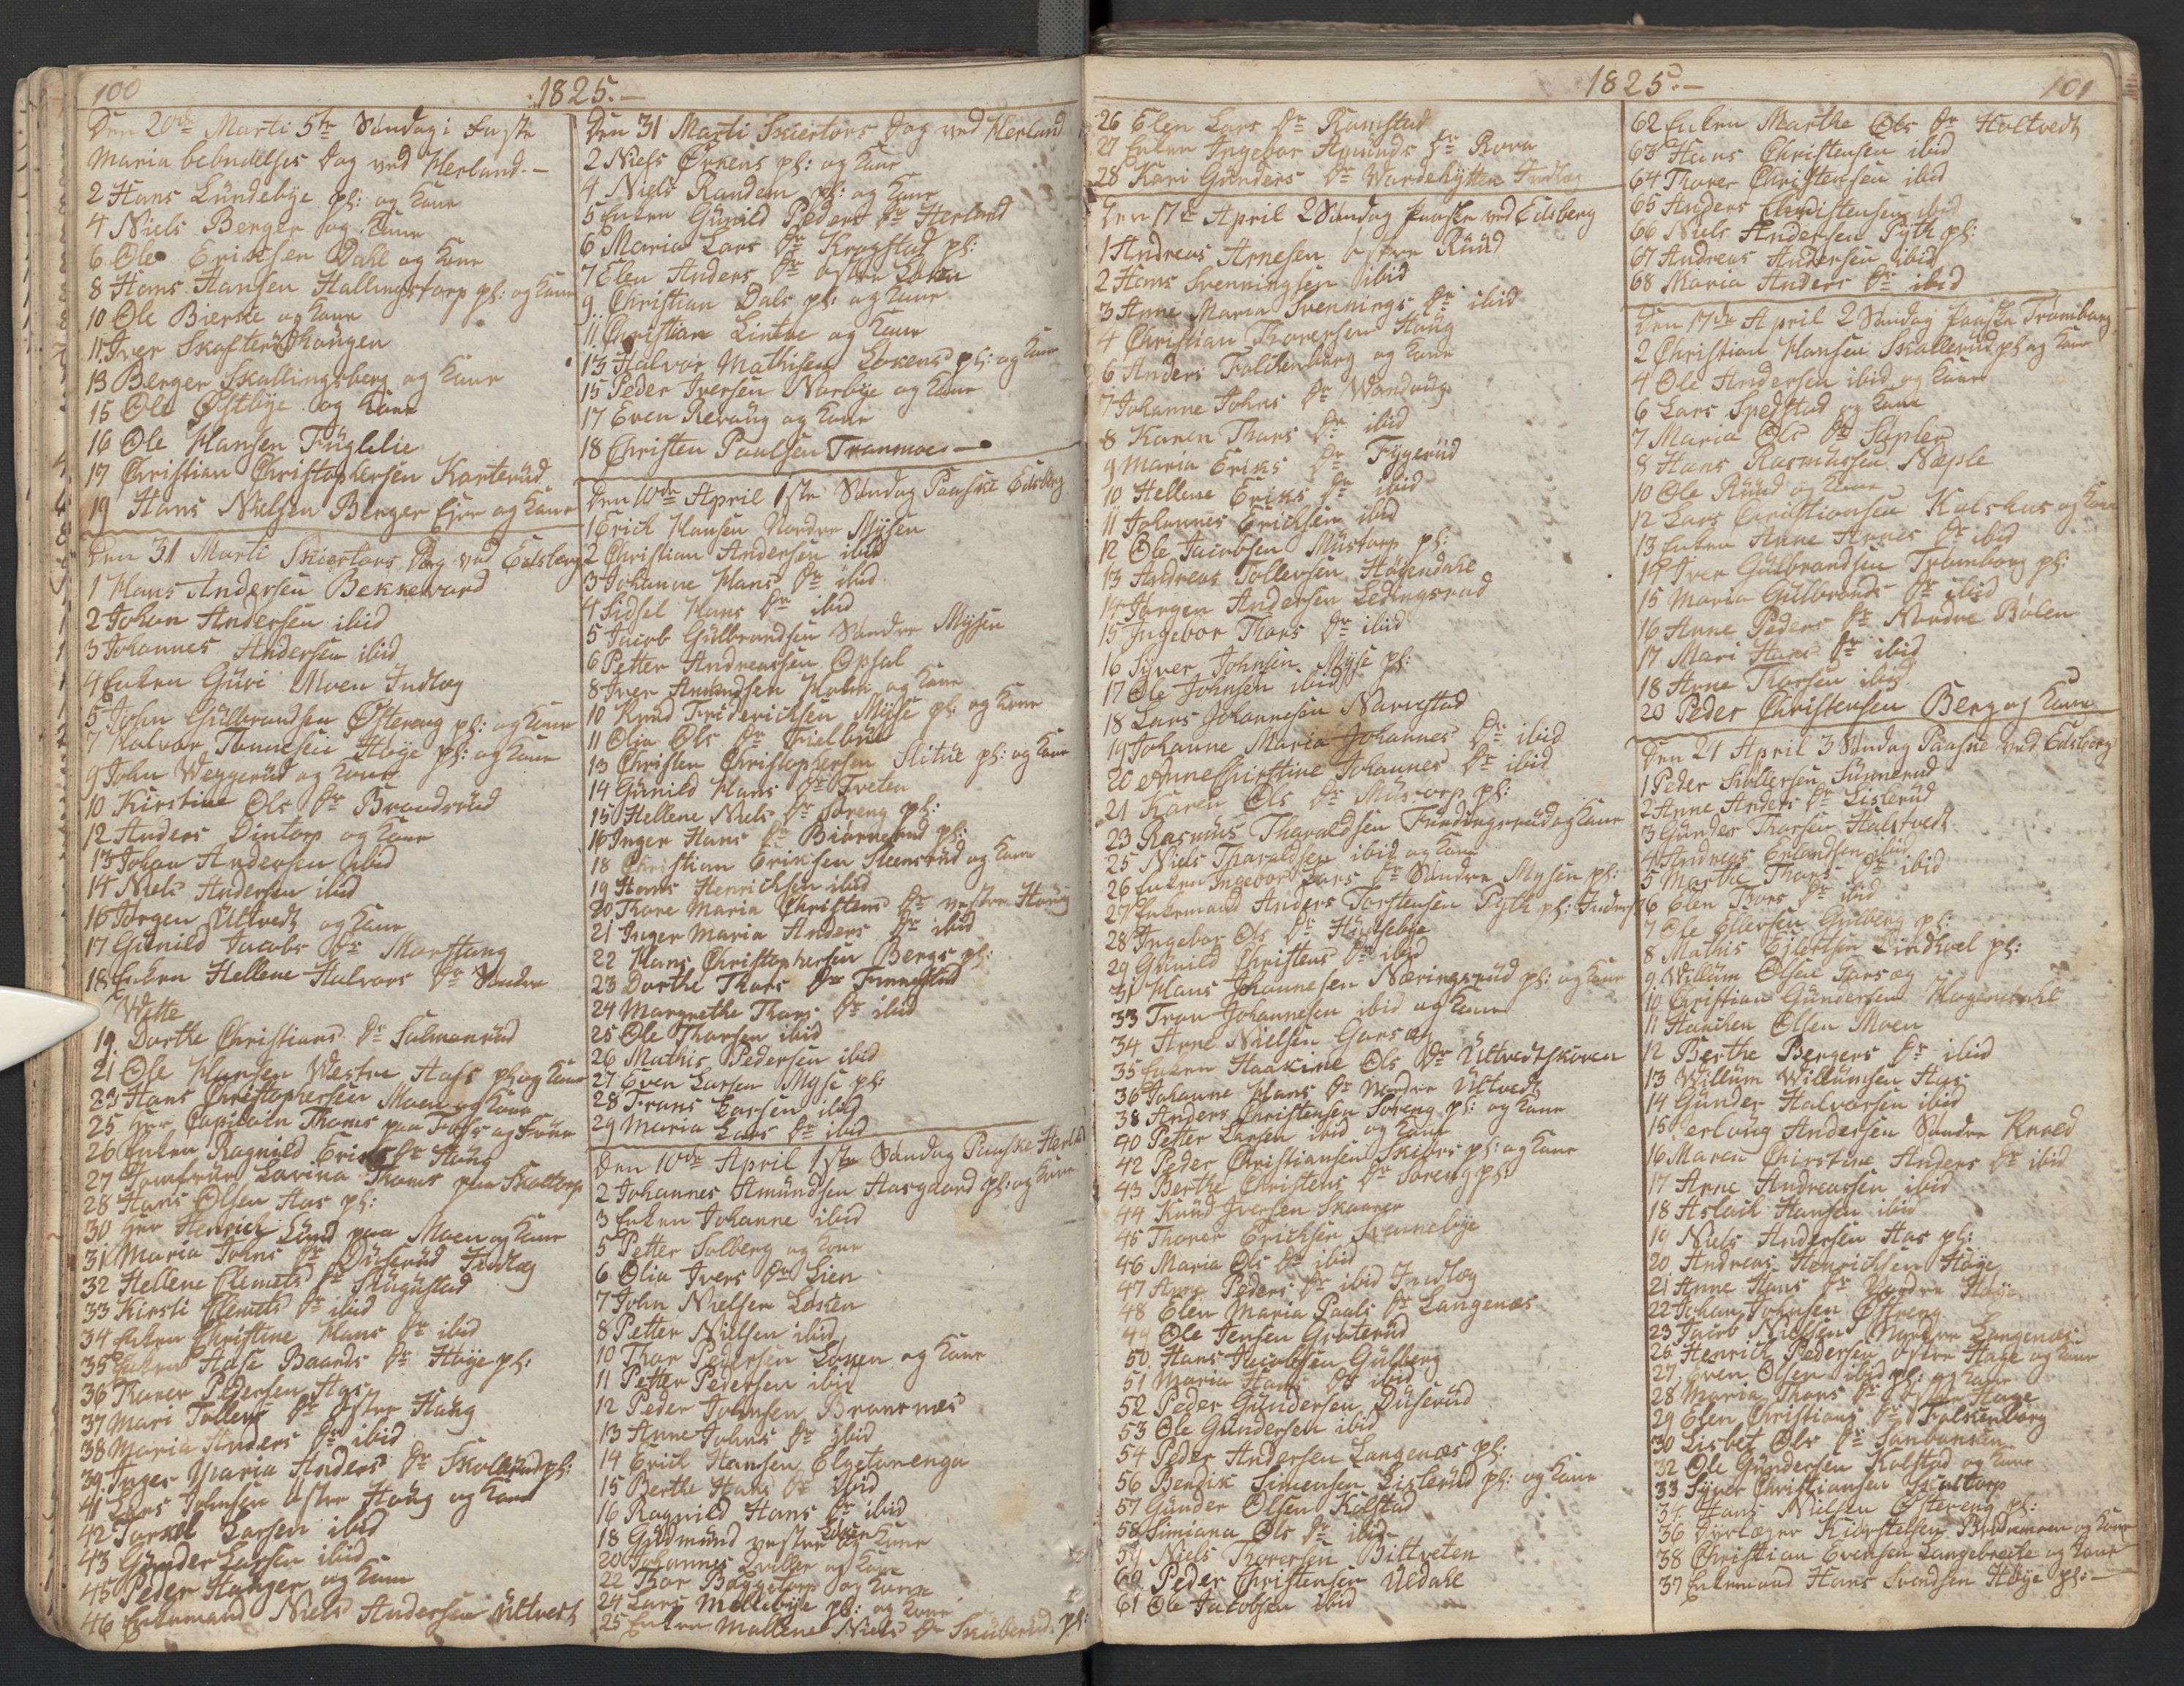 100
1825.-
Den 20de Marti 5te Søndag i Faste
Maria bebudelses Dag ved Herland.-
2 Hans Lundebye pl: og Kone
4 Niels Berger og Kone
6 Ole Eriksen Dahl og Kone
8 Hans Hansen Hallingstorp pl: og Kone
10 Ole Bierke og Kone
11 Iver Skofterudhaugen
13 Berger Skallingsberg og Kone
15 Ole Østbye og Kone
16 Ole Hansen Fuglelie
17 Christian Christophersen Karterud
19 Hans Nielsen Berger Eier og Kone
Den 31 Marti Skiertors Dag ved Edsberg
1 Hans Andersen Bekkevard
2 Johan Andersen ibid
3 Johannes Andersen ibid
4 Enken Guri Moen Indlæg
5 John Gulbrandsen Østereng pl: og Kone
7 Halvor Tønnesen Høye pl: og Kone
9 John Weggerud og Kone
10 Kirstine Ols Dr Brandsrud
12 Anders Dintorp og Kone
13 Johan Andersen ibid
14 Niels Andersen ibid
16 Jørgen Ultvedt og Kone
17 Gunild Jacobs Dr Morstang
18 Enken Hellene Halvors Dr Søndre
Wette
19 Dorthe Christians Dr Salmonrud
21 Ole Hansen Westre Aas pl: og Kone
23 Hans Christophersen Moen og Kone
25 Her Capitain Thoms paa Foss og Frue
26 Enken Ragnild Eriks Dr Haug
27 Jomfrue Lovina Thoms paa Skoltorp
28 Hans Olsen Aas pl:
30 Her Henrich Lund paa Moen og Kone
31 Maria Johns Dr Duserud Indlæg
32 Hellene Clemets Dr Skugustad
33 Kirsti Clemets Dr ibid
34 Enken Christine Hans Dr ibid
35 Enken Aase Baards Dr Høye pl:
36 Thorer Pedersen Aas
37 Mari Tollevs Dr østre Haug
38 Maria Anders Dr ibid
39 Inger Maria Anders Dr Skolerud pl:
41 Lars Johnsen østre Haug og Kone
42 Torkel Larsen ibid
43 Gunder Larsen ibid
45 Peder Hauger og Kone
46 Enkemand Niels Andersen Ultvedt
Den 31 Marti Skiertors Dag ved Herland
2 Niels Ørkens pl: og Kone
4 Niels Randem pl: og Kone
5 Enken Gunild Peders Dr Herland
6 Maria Lars Dr Kragstad pl:
7 Elen Anders Dr østre Løken
9 Christian Dals pl: og Kone
11 Christian Lintoe og Kone
13 Halvor Mathisen Løkens pl: og Kone
15 Peder Iversen Narbye og Kone
17 Even Revaug og Kone
18 Christen Paulsen Tranmoe.-
Den 10de April 1ste Søndag Paaske Edsberg
1 Erich Hansen Nordre Mysen
2 Christian Andersen ibid
3 Johanne Hans Dr ibid
4 Sidsel Hans Dr ibid
5 Jacob Gulbrandsen Søndre Mysen
6 Petter Andreassen Opsal
8 Iver Amundsen Holm og Kone
10 Knud Friderichsen Myse pl: og Kone
11 Olia Ols Dr Fielbue
13 Christen Christophersen Slitue pl: og Kone
14 Gunild Hans Dr Tveten
15 Hellene Niels Dr Soreng pl:
16 Inger Hans Dr Biørnerud pl:
18 Christian Eriksen Steensrud og Kone
19 Hans Henrichsen ibid
20 Thore Maria Christens Dr vestre Haug
21 Inger Maria Anders Dr ibid
22 Hans Christophersen Bergs pl:
23 Dorthe Thors Dr
24 Margrethe Thors Dr ibid
25 Ole Thorsen ibid
26 Mathis Pedersen ibid
27 Even Larsen Myse pl:
28 Frans Larsen ibid
29 Maria Lars Dr ibid
Den 10de April 1ste Søndag Paaske Herland
2 Johannes Amundsen Aasgaard pl: og Kone
3 Enken Johanne ibid
5 Petter Solberg og Kone
6 Olia Ivers Dr Lien
7 John Nielsen Løken
8 Petter Nielsen ibid
10 Thor Pedersen Løken og Kone
11 Petter Pedersen ibid
12 Peder Johnsen Branrnæs
13 Anne Johns Dr ibid
14 Erich Hansen Elgetonenga
15 Berthe Hans Dr ibid
16 Ragnild Hans Dr ibid
18 Gudmund vestre Løken og Kone
20 Johannes og Kone
22 Thor Bøggetorp og Kone
24 Lars Mellebye pl: og Kone
25 Enken Mallene Niels Dr Skuberud pl:
1825.-
101
26 Elen Lars Dr Ramstad
27 Enken Ingebor Amunds Dr Rova
28 Kari Gunders Dr Wardehytten Indlæg
Den 17de April 2 Søndag Paaske ved Edsberg
1 Andreas Arnesen østre Ruud
2 Hans Svenningsen ibid
3 Anne Maria Svennings Dr ibid
4 Christian Thoresen Haug
6 Anders Falchenborg og Kone
7 Johanne Johns Dr Wandaug
8 Karen Thors Dr ibid
9 Maria Eriks Dr Fygerud
10 Hellene Eriks Dr ibid
11 Johannes Erichsen ibid
12 Ole Jacobsen Mustorp pl:
13 Andreas Tollevsen Høgendahl
14 Jørgen Andersen Ledingsrud
15 Ingebor Thors Dr ibid
16 Syver Johnsen Myse pl:
17 Ole Johnsen ibid
18 Lars Johannesen Narvestad
19 Johanne Maria Johannes Dr ibid
20 Anne Chirstine Johannes Dr ibid
21 Karen Ols Dr Mustorp pl:
23 Rasmus Tharaldsen Fundingsrud og Kone
25 Niels Tharaldsen ibid og Kone
26 Enken Ingebor Lars Dr Søndre Mysen pl:
27 Enkemand Anders Torstensen Pyth pl: Inderst
28 Ingebor Ols Dr Huusebye
29 Gunild Christens Dr ibid
31 Hans Johannesen Næringsrud pl: og Kone
33 Tron Johannesen ibid og Kone
34 Arne Nielsen Garseg
35 Enken Haakine Ols Dr Ultvedtskoven
36 Johanne Hans Dr Nordre Ultvedt
38 Anders Christensen Soreng pl: og Kone
40 Petter Larsen ibid og Kone
42 Peder Christiansen Skiørs pl: og Kone
43 Berthe Christens Dr Soreng pl:
44 Knud Iversen Skaarer
45 Thorer Erichsen Svennebye
46 Maria Ols Dr ibid
47 Anne Peders Dr ibid Indlæg
48 Elen Maria Pauls Dr Langenæs
49 Ole Jensen Grøterud
50 Hans Jacobsen Gulberg
51 Maria Hans Dr ibid
52 Peder Gundersen Duserud
53 Ole Gundersen ibid
54 Peder Andersen Langenæs pl:
56 Bendik Simensen Lislerud pl: og Kone
57 Gunder Olsen Kolstad
58 Simiana Ols Dr ibid
59 Niels Thorersen Bittveten
60 Peder Christensen Uldahl
61 Ole Jacobsen ibid
62 Enken Marthe Ols Dr Holtvedt
63 Hans Christensen ibid
64 Thorer Christensen ibid
65 Anders Christensen ibid
66 Niels Andersen Pyth pl:
67 Andreas Andersen ibid
68 Maria Anders Dr ibid
Den 17de April 2 Søndag Paaske Trømborg
2 Christian Hansen Skallerud pl: og Kone
4 Ole Andersen ibid og Kone
6 Lars Spedstad og Kone
7 Maria Ols Dr
8 Hans Rasmussen Næple
10 Ole Ruud og Kone
12 Lars Christiansen Kalskas og Kone
13 Enken Anne Arnes Dr ibid
14 Iver Gulbrandsen Trømborg pl:
15 Maria Gulbrands Dr ibid
16 Anne Peders Dr Nordre Bølen
17 Mari Hans Dr ibid
18 Arne Thorsen ibid
20 Peder Christensen Berg og Kone
Den 24 April 3 Søndag Paaske ved Edsberg
1 Peder
2 Anne Anders Dr Lislerud
3 Gunder Thorsen Halstvedt
4 Andreas Erlandsen ibid
5 Marthe Thors Dr ibid
6 Elen Thors Dr ibid
7 Ole Ellevsen Gulberg pl:
8 Mathis Ejlertsen Lindhoel pl:
9 Willum Olsen Garseg
10 Christian Gundersen Høgendahl
11 Haachen Olsen Moen
12 Berthe Bergers Dr ibid
13 Willum Willumsen Aas
14 Gunder Halvorsen ibid
15 Erlaug Andersen Søndre Kroed
16 Maren Chirstine Anders Dr ibid
17 Arne Andreassen ibid
18 Aslach Hansen ibid
19 Niels Andersen Aas pl:
20 Andreas Henrichsen Høye
21 Anne Hans Dr Nordre Høye
22 Johan Johnsen Østreng
23 Jacob Nielsen Nordre Langenæs
25 Henrich Pedersen østre Hage og Kone
27 Even Olsen ibid pl: og Kone
28 Maria Thors Dr østre Hage
29 Elen Christians Dr Falkenborg
30 Lisbet Ols Dr
32 Ole Gundersen Kolstad og Kone
33 Syver Christiansen Skoltorp
34 Hans Nielsen Østereng pl:
36 Dyrlæger Kiørstelsen og Kone
38 Christian Evensen Langebrecke og Kone
37 Enkemand Hans Svendsen Høye pl:-